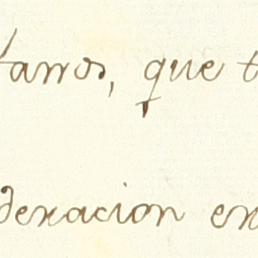 tarros, que t
deracion en